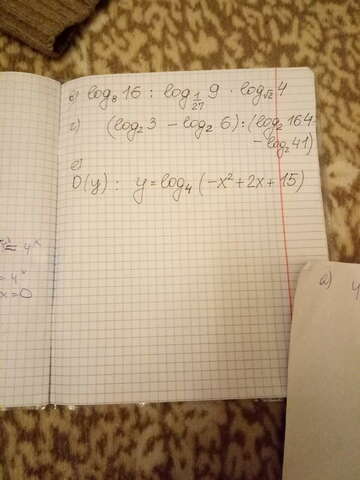 в) log₈ 16 : log_{1/27} 9 · log_{√2} 4
г) (log₂ 3 − log₂ 6) : (log₂ 164
− log₂ 41)
е)
D(y) : y = log₄ (−x² + 2x + 15)
= 4ˣ
= 4ˣ
x = 0
а) y